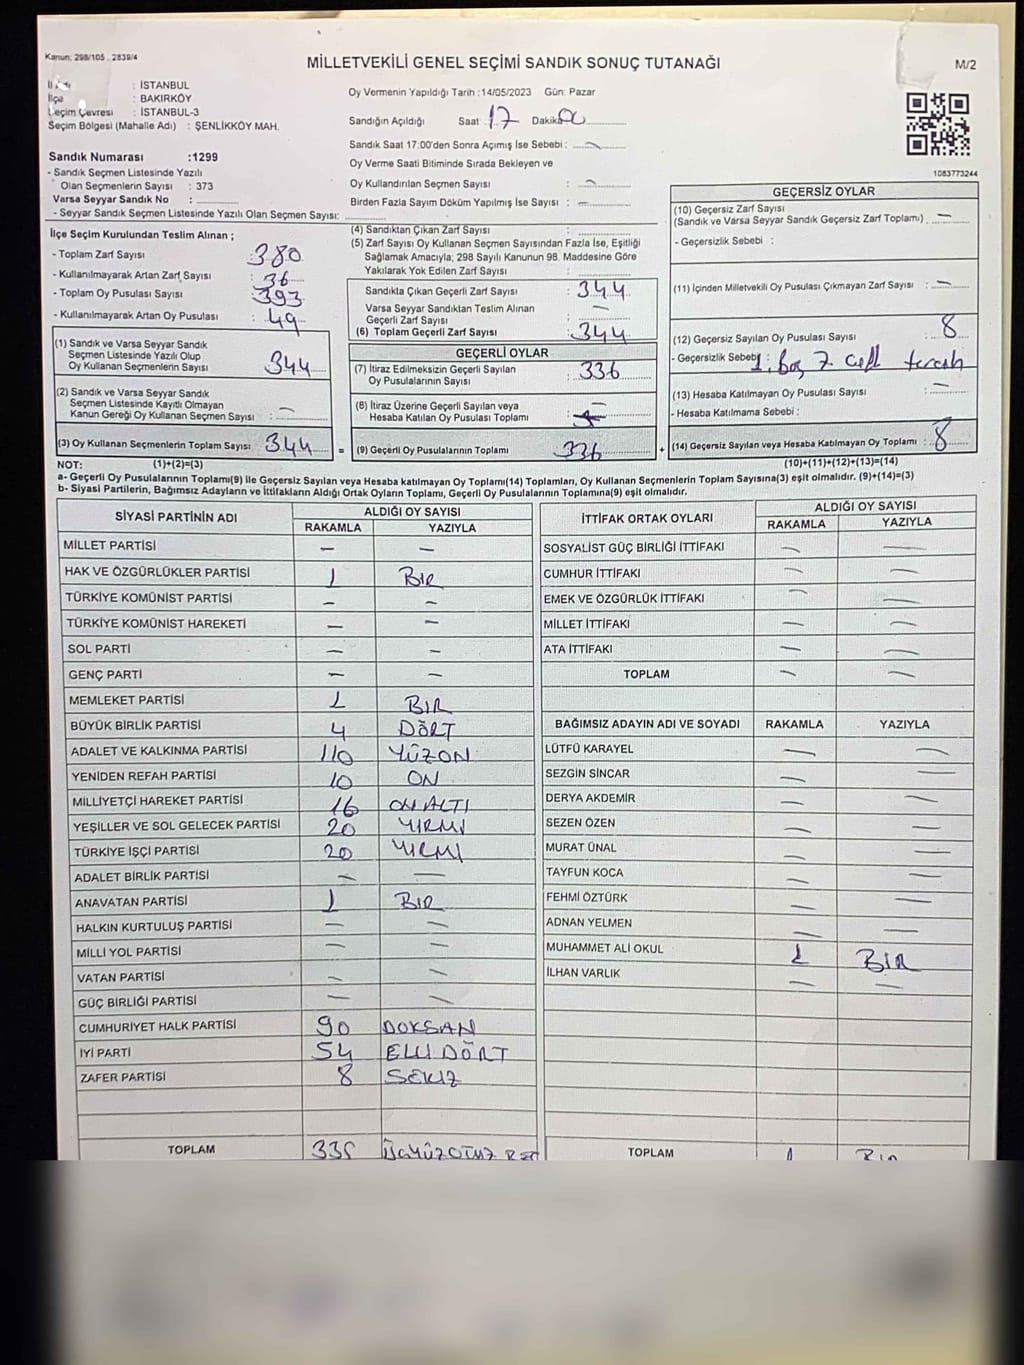 Kanun: 298/105 , 2839/4
MİLLETVEKİLİ GENEL SEÇİMİ SANDIK SONUÇ TUTANAĞI
M/2
: İSTANBUL
İlçe : BAKIRKÖY
Seçim Çevresi : İSTANBUL-3
Seçim Bölgesi (Mahalle Adı) : ŞENLİKKÖY MAH.
Oy Vermenin Yapıldığı Tarih :14/05/2023 Gün: Pazar
Sandığın Açıldığı Saat 17 Dakika 00
Sandık Saat 17:00'den Sonra Açımış İse Sebebi : —
Oy Verme Saati Bitiminde Sırada Bekleyen ve
Oy Kullandırılan Seçmen Sayısı : —
Birden Fazla Sayım Döküm Yapılmış İse Sayısı : —
1083773244
Sandık Numarası :1299
- Sandık Seçmen Listesinde Yazılı
Olan Seçmenlerin Sayısı : 373
Varsa Seyyar Sandık No :
- Seyyar Sandık Seçmen Listesinde Yazılı Olan Seçmen Sayısı:
İlçe Seçim Kurulundan Teslim Alınan ;
- Toplam Zarf Sayısı : 380
- Kullanılmayarak Artan Zarf Sayısı : 36
- Toplam Oy Pusulası Sayısı : 393
- Kullanılmayarak Artan Oy Pusulası : 49
(1) Sandık ve Varsa Seyyar Sandık
Seçmen Listesinde Yazılı Olup
Oy Kullanan Seçmenlerin Sayısı : 344
(2) Sandık ve Varsa Seyyar Sandık
Seçmen Listesinde Kayıtlı Olmayan
Kanun Gereği Oy Kullanan Seçmen Sayısı : —
(3) Oy Kullanan Seçmenlerin Toplam Sayısı : 344
(4) Sandıktan Çıkan Zarf Sayısı :
(5) Zarf Sayısı Oy Kullanan Seçmen Sayısından Fazla İse, Eşitliği
Sağlamak Amacıyla; 298 Sayılı Kanunun 98. Maddesine Göre
Yakılarak Yok Edilen Zarf Sayısı :
Sandıkta Çıkan Geçerli Zarf Sayısı : 344
Varsa Seyyar Sandıktan Teslim Alınan
Geçerli Zarf Sayısı : —
(6) Toplam Geçerli Zarf Sayısı : 344
GEÇERLİ OYLAR
(7) İtiraz Edilmeksizin Geçerli Sayılan
Oy Pusulalarının Sayısı : 336
(8) İtiraz Üzerine Geçerli Sayılan veya
Hesaba Katılan Oy Pusulası Toplamı :
= (9) Geçerli Oy Pusulalarının Toplamı : 336 +
GEÇERSİZ OYLAR
(10) Geçersiz Zarf Sayısı
(Sandık ve Varsa Seyyar Sandık Geçersiz Zarf Toplamı) . —
- Geçersizlik Sebebi :
(11) İçinden Milletvekili Oy Pusulası Çıkmayan Zarf Sayısı : —
(12) Geçersiz Sayılan Oy Pusulası Sayısı : 8
- Geçersizlik Sebebi : 1. boş 7. çift tercih
(13) Hesaba Katılmayan Oy Pusulası Sayısı : —
- Hesaba Katılmama Sebebi :
(14) Geçersiz Sayılan veya Hesaba Katılmayan Oy Toplamı : 8
NOT: (1)+(2)=(3)
(10)+(11)+(12)+(13)=(14)
a- Geçerli Oy Pusulalarının Toplamı(9) ile Geçersiz Sayılan veya Hesaba katılmayan Oy Toplamı(14) Toplamları, Oy Kullanan Seçmenlerin Toplam Sayısına(3) eşit olmalıdır. (9)+(14)=(3)
b- Siyasi Partilerin, Bağımsız Adayların ve İttifakların Aldığı Ortak Oyların Toplamı, Geçerli Oy Pusulalarının Toplamına(9) eşit olmalıdır.
SİYASİ PARTİNİN ADI ALDIĞI OY SAYISI
RAKAMLA YAZIYLA
MİLLET PARTİSİ — —
HAK VE ÖZGÜRLÜKLER PARTİSİ 1 BİR
TÜRKİYE KOMÜNİST PARTİSİ — —
TÜRKİYE KOMÜNİST HAREKETİ — —
SOL PARTİ — —
GENÇ PARTİ — —
MEMLEKET PARTİSİ 1 BIR
BÜYÜK BİRLİK PARTİSİ 4 DÖRT
ADALET VE KALKINMA PARTİSİ 110 YÜZON
YENİDEN REFAH PARTİSİ 10 ON
MİLLİYETÇİ HAREKET PARTİSİ 16 ON ALTI
YEŞİLLER VE SOL GELECEK PARTİSİ 20 YIRMI
TÜRKİYE İŞÇİ PARTİSİ 20 YIRMI
ADALET BİRLİK PARTİSİ — —
ANAVATAN PARTİSİ 1 BIR
HALKIN KURTULUŞ PARTİSİ — —
MİLLİ YOL PARTİSİ — —
VATAN PARTİSİ — —
GÜÇ BİRLİĞİ PARTİSİ — —
CUMHURİYET HALK PARTİSİ 90 DOKSAN
İYİ PARTİ 54 ELLİ DÖRT
ZAFER PARTİSİ 8 SEKİZ
TOPLAM 335
İTTİFAK ORTAK OYLARI ALDIĞI OY SAYISI
RAKAMLA YAZIYLA
SOSYALİST GÜÇ BİRLİĞİ İTTİFAKI — —
CUMHUR İTTİFAKI — —
EMEK VE ÖZGÜRLÜK İTTİFAKI — —
MİLLET İTTİFAKI — —
ATA İTTİFAKI — —
TOPLAM — —
BAĞIMSIZ ADAYIN ADI VE SOYADI RAKAMLA YAZIYLA
LÜTFÜ KARAYEL — —
SEZGİN SİNCAR — —
DERYA AKDEMİR — —
SEZEN ÖZEN — —
MURAT ÜNAL — —
TAYFUN KOCA — —
FEHMİ ÖZTÜRK — —
ADNAN YELMEN — —
MUHAMMET ALİ OKUL 1 BIR
İLHAN VARLIK — —
TOPLAM 1 BIR